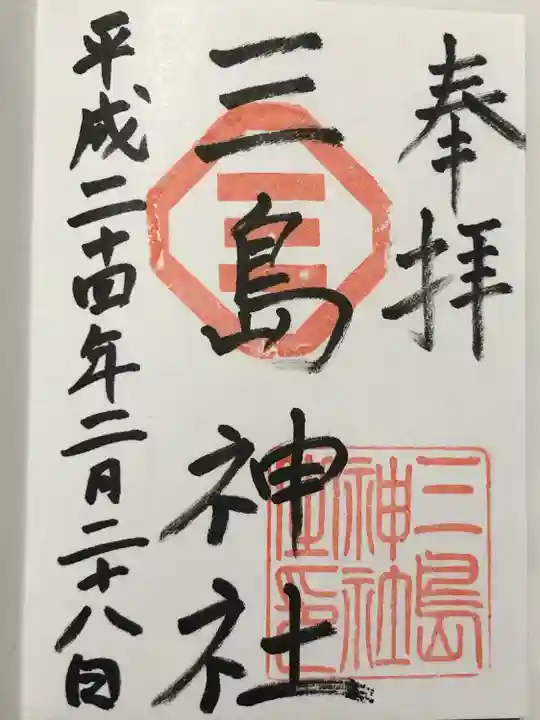 奉拝
三島神社
三島
神社
平成二十四年二月二十八日